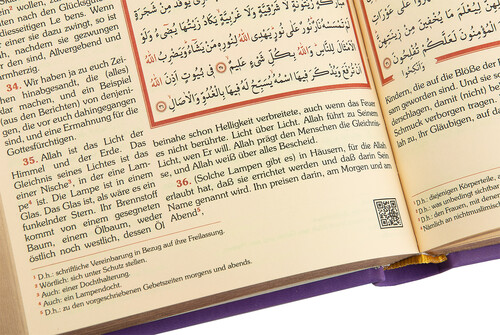 wollen, nachdem
ach den Glücksgüter
diesseitigen Le
ens. Wenn
einer sie dazu zwingt, so ist
, nachdem sie gezwungen
den sind, Allvergebend und
armherzig.
34. Wir haben ja zu euch Zei-
hinabgesandt, die (alles)
dar machen, und ein Beispiel
(aus den Berichten) von denjeni-
gen, die vor euch dahingegangen
sind, und eine Ermahnung für die
Gottesfürchtigen.
35. Allah ist das Licht der
Himmel und der Erde. Das
Gleichnis seines Lichtes ist das
einer Nische³, in der eine Lam-
pe⁴ ist. Die Lampe ist in einem
Glas. Das Glas ist, als wäre es ein
funkelnder Stern. Ihr Brennstoff
kommt von einem gesegneten
Baum, einem Ölbaum, weder
östlich noch westlich, dessen Öl
مُبَارَكَةٍ زَيْتُونَةٍ لَا شَرْقِيَّةٍ وَلَا غَرْبِيَّةٍ يَكَادُ زَيْتُهَا يُضِيءُ وَلَوْ
لَمْ تَمْسَسْهُ نَارٌ نُورٌ عَلَى نُورٍ يَهْدِي اللَّهُ لِنُورِهِ مَنْ يَشَاءُ وَيَضْرِبُ اللَّهُ
الْأَمْثَالَ لِلنَّاسِ وَاللَّهُ بِكُلِّ شَيْءٍ عَلِيمٌ ﴿٣٥﴾ فِي بُيُوتٍ أَذِنَ اللَّهُ
أَنْ تُرْفَعَ وَيُذْكَرَ فِيهَا اسْمُهُ يُسَبِّحُ لَهُ فِيهَا بِالْغُدُوِّ وَالْآصَالِ ﴿٣٦﴾
beinahe schon Helligkeit verbreitete, auch wenn das Feuer
es nicht berührte. Licht über Licht. Allah führt zu Seinem
Licht, wen Er will. Allah prägt den Menschen die Gleichnis-
se, und Allah weiß über alles Bescheid.
36. (Solche Lampen gibt es) in Häusern, für die Allah
erlaubt hat, daß sie errichtet werden und daß darin Sein
Name genannt wird. Ihn preisen darin, am Morgen und am
Abend⁵,
1 D.h.: schriftliche Vereinbarung in Bezug auf ihre Freilassung.
2 Wörtlich: sich unter Schutz stellen.
3 Auch: einer Dochthalterung.
4 Auch: ein Lampendocht.
5 D.h.: zu den vorgeschriebenen Gebetszeiten morgens und abends.
الْمُؤْمِنُونَ لَعَلَّكُمْ تُفْلِحُونَ
Kindern, die auf die Blöße der
sam geworden sind. Und sie
derschlagen, damit (nicht) be
Schmuck verborgen tragen.
lah zu, ihr Gläubigen, auf da
1 D.h.: diejenigen Körperteile, d
2 D.h.: was unbedingt sichtbar
3 D.h.: den Frauen, mit denen
4 Nämlich an nichtmuslimisch